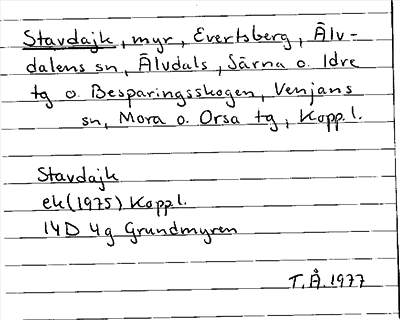 Stavdajk, myr, Evertsberg, Älv-
dalens sn, Älvdals, Särna o. Idre
tg o. Besparingsskogen, Venjans
sn, Mora o. Orsa tg, Kopp.l.
Stavdajk
ek (1975) Kopp.l.
14D 4g Grundmyren
T.Å. 1977